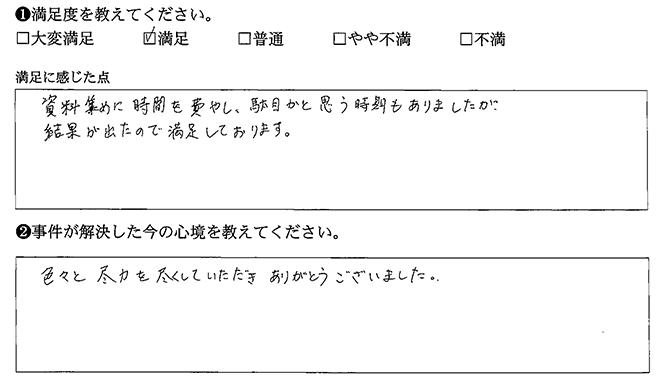 ❶満足度を教えてください。
□大変満足 ☑満足 □普通 □やや不満 □不満
満足に感じた点
資料集めに時間を費やし、駄目かと思う時期もありましたが
結果が出たので満足しております。
❷事件が解決した今の心境を教えてください。
色々と尽力を尽くしていただきありがとうございました。